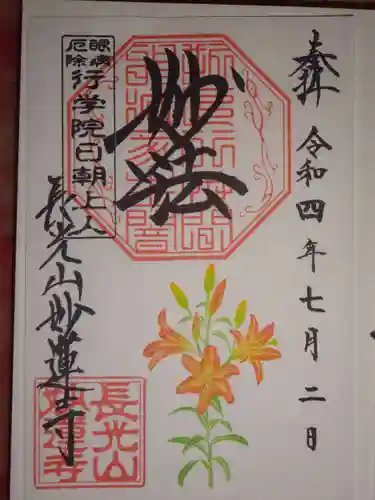 奉拝
令和四年七月二日
妙法
眼病
厄除
行学院日朝上人
長光山妙蓮寺
長光山
妙蓮寺